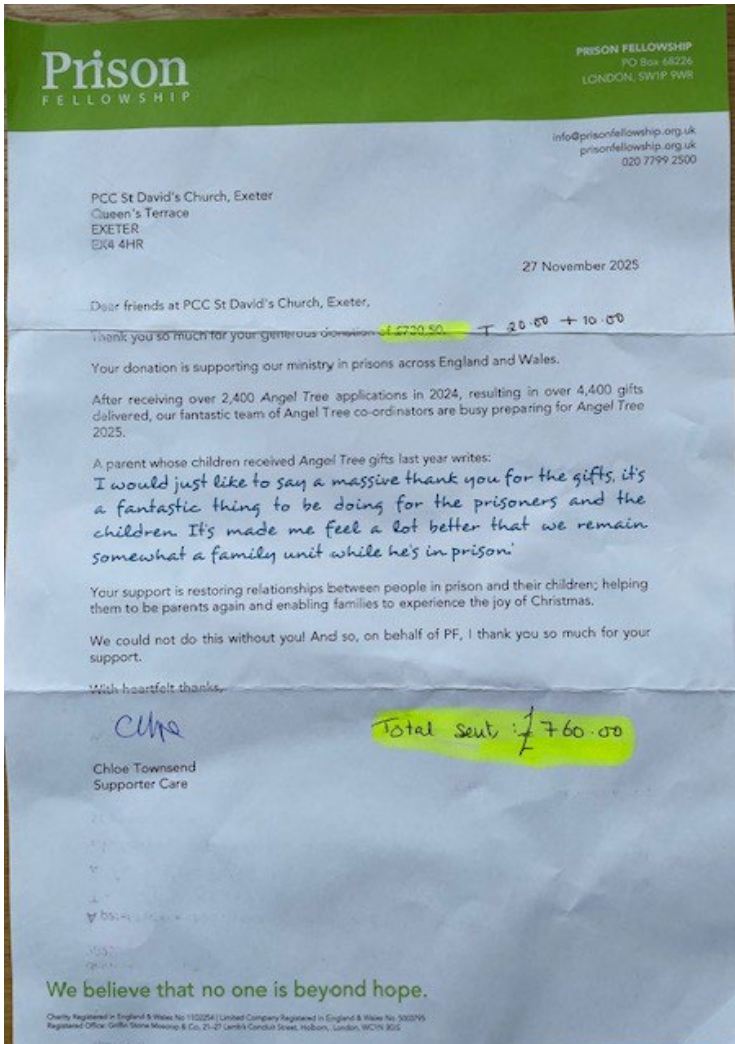 Prison
FELLOWSHIP
PRISON FELLOWSHIP
PO Box 68226
LONDON, SW1P 9WR
info@prisonfellowship.org.uk
prisonfellowship.org.uk
020 7799 2500
PCC St David's Church, Exeter
Queen's Terrace
EXETER
EX4 4HR
27 November 2025
Dear friends at PCC St David's Church, Exeter,
Thank you so much for your generous donation of £730.50. + 20.00 + 10.00
Your donation is supporting our ministry in prisons across England and Wales.
After receiving over 2,400 Angel Tree applications in 2024, resulting in over 4,400 gifts
delivered, our fantastic team of Angel Tree co-ordinators are busy preparing for Angel Tree
2025.
A parent whose children received Angel Tree gifts last year writes:
I would just like to say a massive thank you for the gifts, it's
a fantastic thing to be doing for the prisoners and the
children. It's made me feel a lot better that we remain
somewhat a family unit while he's in prison.'
Your support is restoring relationships between people in prison and their children; helping
them to be parents again and enabling families to experience the joy of Christmas.
We could not do this without you! And so, on behalf of PF, I thank you so much for your
support.
With heartfelt thanks,
Chloe
Total sent : £760.00
Chloe Townsend
Supporter Care
We believe that no one is beyond hope.
Charity Registered in England & Wales No 1102254 | Limited Company Registered in England & Wales No 5003795
Registered Office: Griffin Stone Moscrop & Co, 21-27 Lamb's Conduit Street, Holborn, London, WC1N 3GS